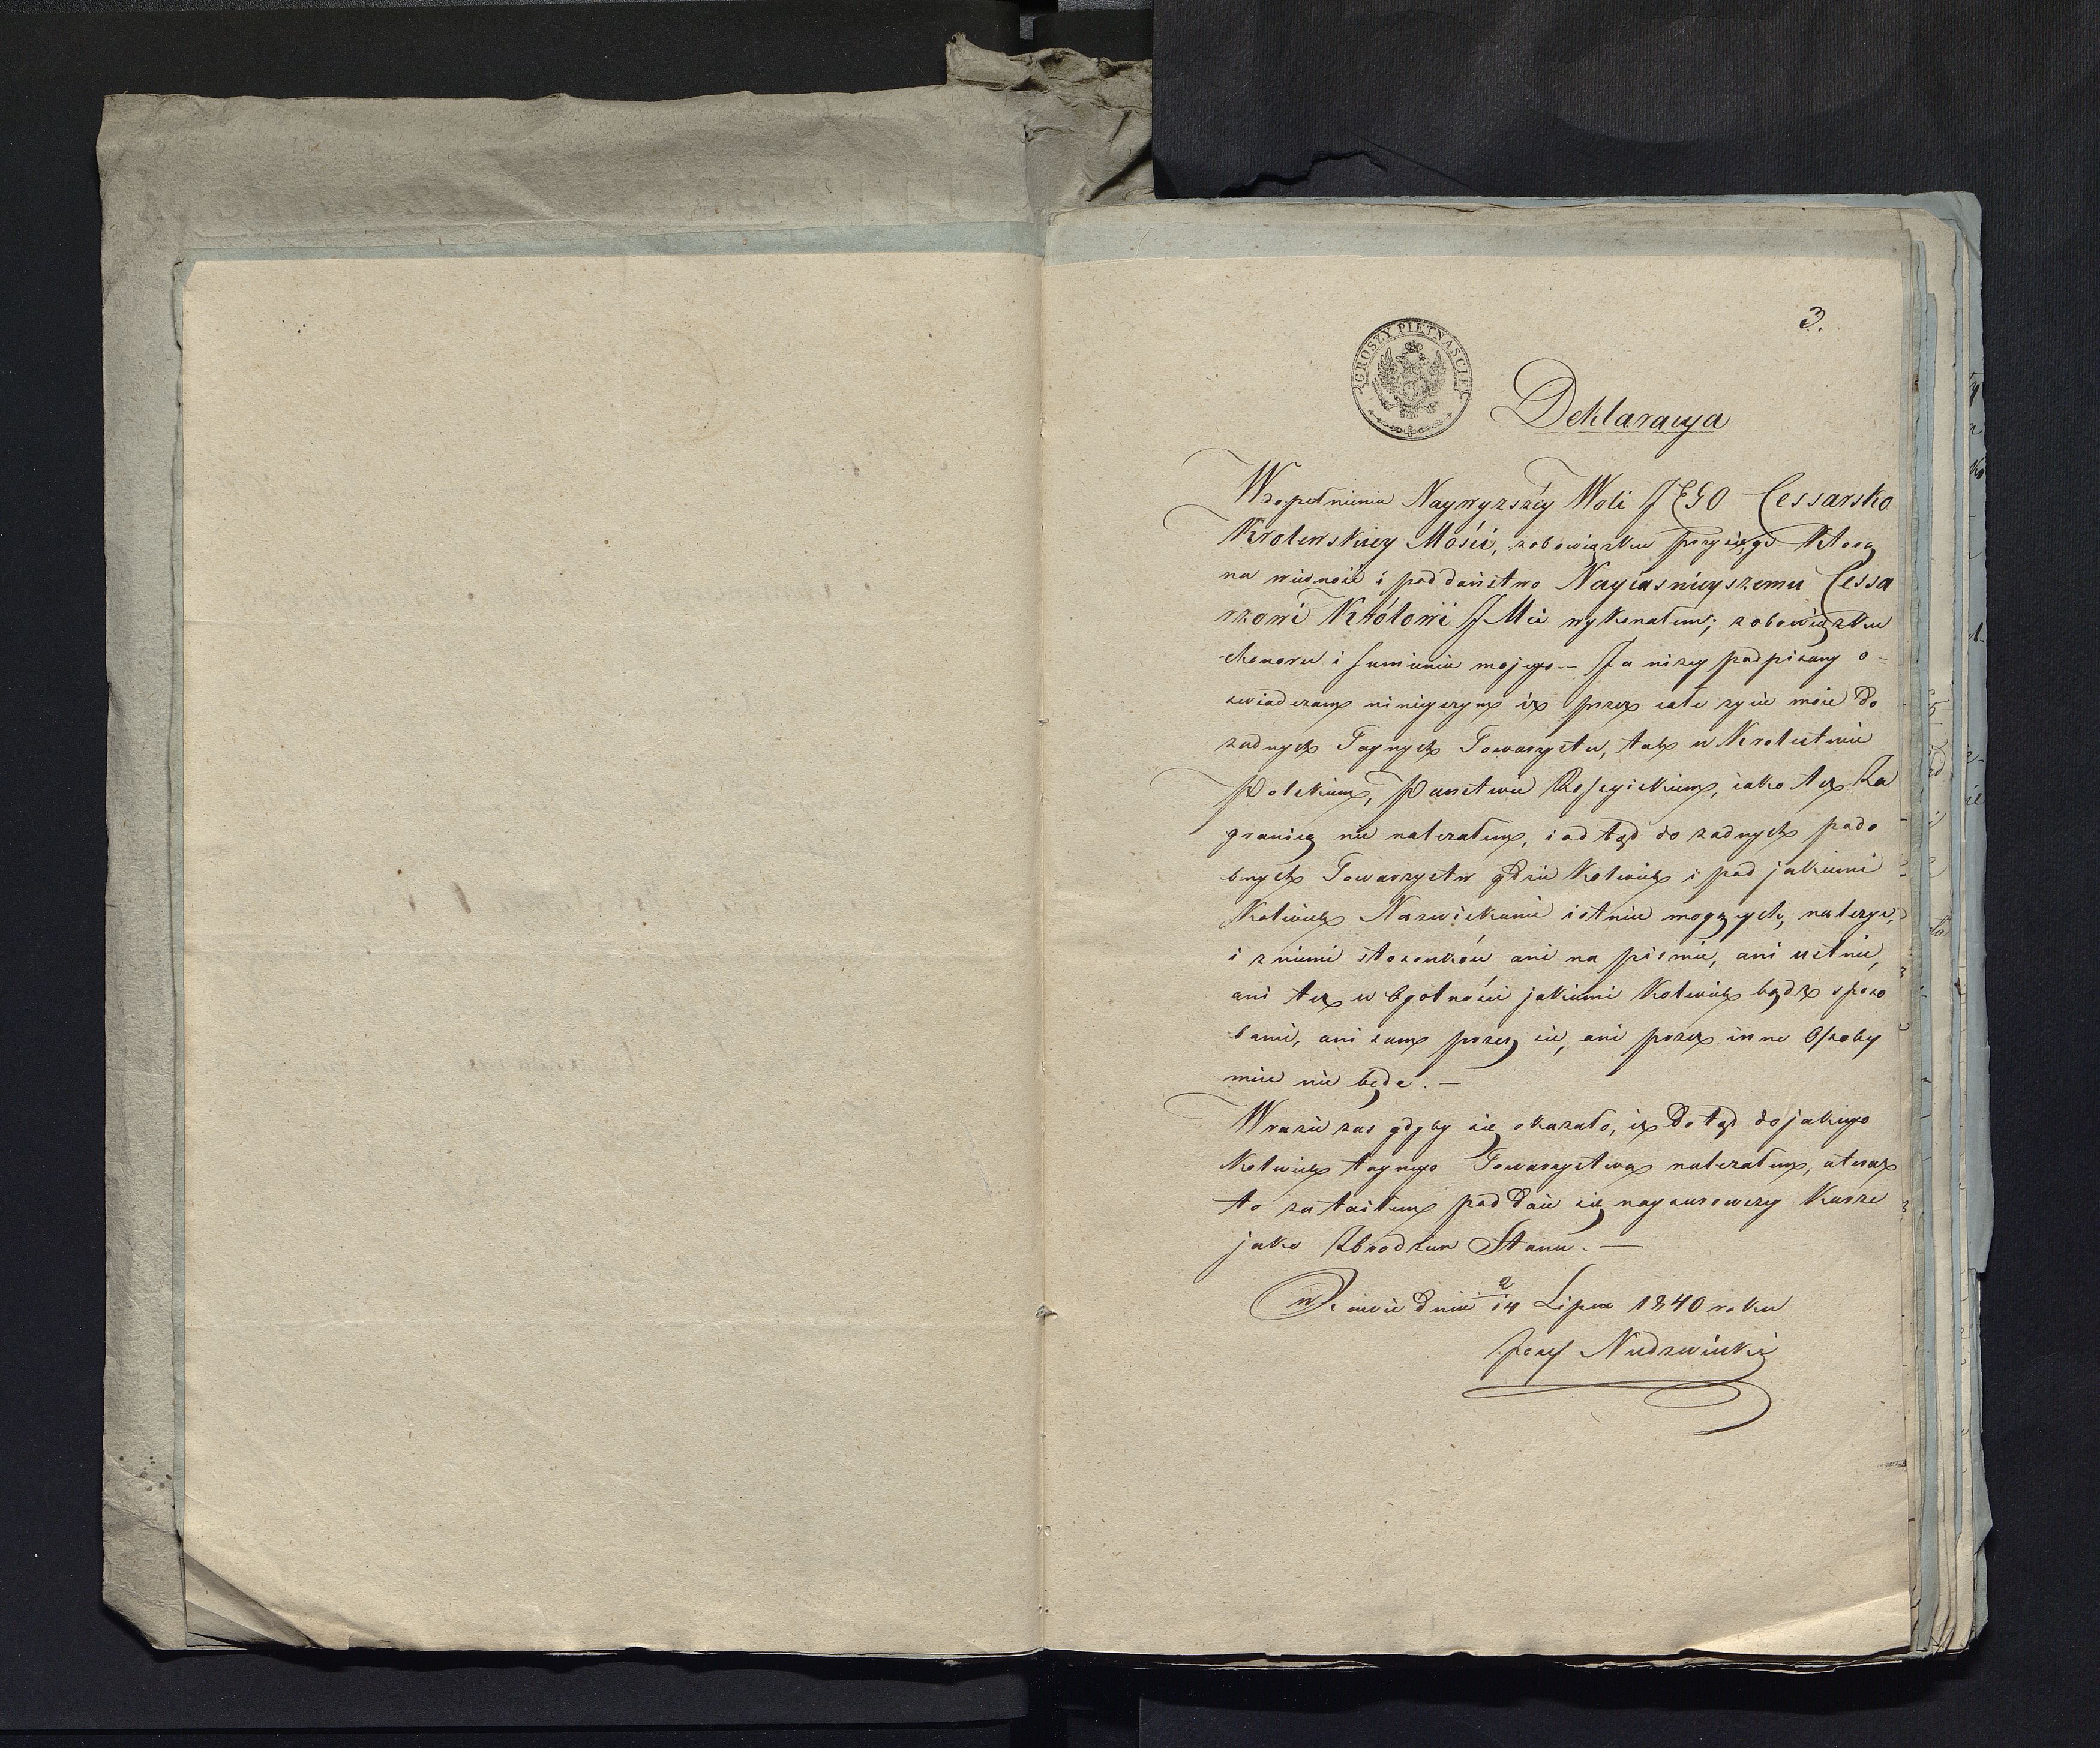 3.
GROSZY PIĘTNAŚCIE
Deklaracya
W dopełnieniu Naywyzszéy Woli JEGO Cessarsko
Krolewskiey Mości, zobowiązku przysięgi Którą
na wierność i poddaństwo Nayiasnieyszemu Cessa
rzowi Królowi JMci wykonałem; z obowiązku
honoru i sumienia mojego -- Ja nizey podpisany o=
swiadczam ninieyszym iż przez całe zycie moie do
zadnych Taynych Towarzystw, tak w Krolestwie
Polskiem, Panstwie Rossyiskiem, iako też Za
granicą nie nalezałem, i od tąd do zadnych podo
bnych Towarzystw gdzie Kolwiek i pod jakiemi
Kolwiek Nazwiskami istnieć mogących, nalezyć,
i z niemi stosonków ani na pismie, ani ustnie,
ani też w Ogolności jakiemi Kolwiek bądź sposo
bami, ani sam przez się, ani przez inne Osoby
mieć nie będe. —
W razie zas gdyby się okazało, iż do tąd do jakiego
Kolwiek taynego Towarzystwa nalezałem, a teraz
to zataiłem poddaie się naysurowszey Karze
jako Zbrodzien Stanu. —
dnia 2/14 Lipca 1840 roku
Jozef Niedzwiecki